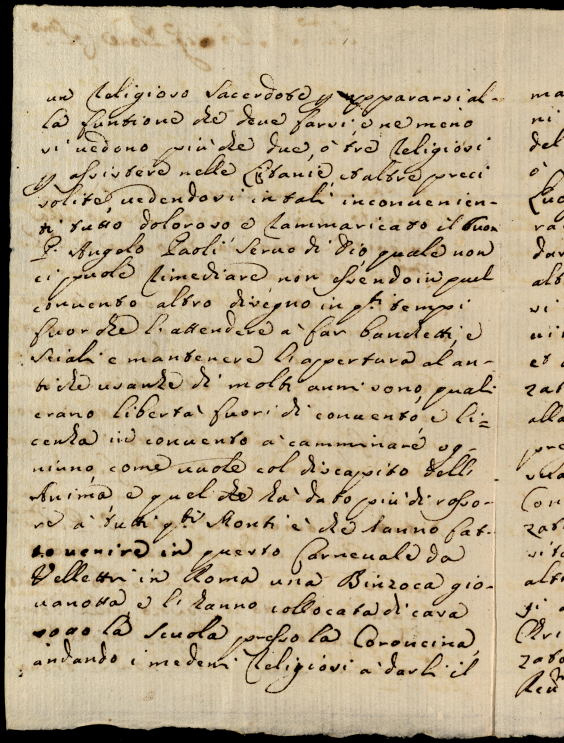 un Religioso Sacerdote p appararsi al-
la funtione che deve farsi, e ne meno
si uedono più che due, ò tre Religiosi
p assistere nelle Litanie, et altre preci
solite, uedendosi in tali inconuenien-
ti tutto doloroso e rammaricato il buon
P. Angelo Paoli Seruo di Dio quale non
ci puole rimediare non essendo in quel
conuento altro disegno in qti tempi
fuor che li attendere à far banchetti, e
Sciali e mantenere li apertura al an-
tiche usanze di molti anni sono, quali
erano libertà fuori di conuento, e li=
cenza in conuento à camminare og-
niuno, come uuole col discapito delli
Anima e quel che hà dato più di rosso-
re à tutti qti Monti è che hanno fat-
to uenire in questo Carneuale da
Velletri in Roma una Binzoca gio-
uanotta e li hanno collocata di casa
sogo la scuola presso la Coroncina,
andando i medemi Religiosi à darli il
ma
ni
del
ò
ra
dar
alt
si
ui
et
zat
alla
pre
Con
zat
sit
alt
gi
Cri
zat
Reu